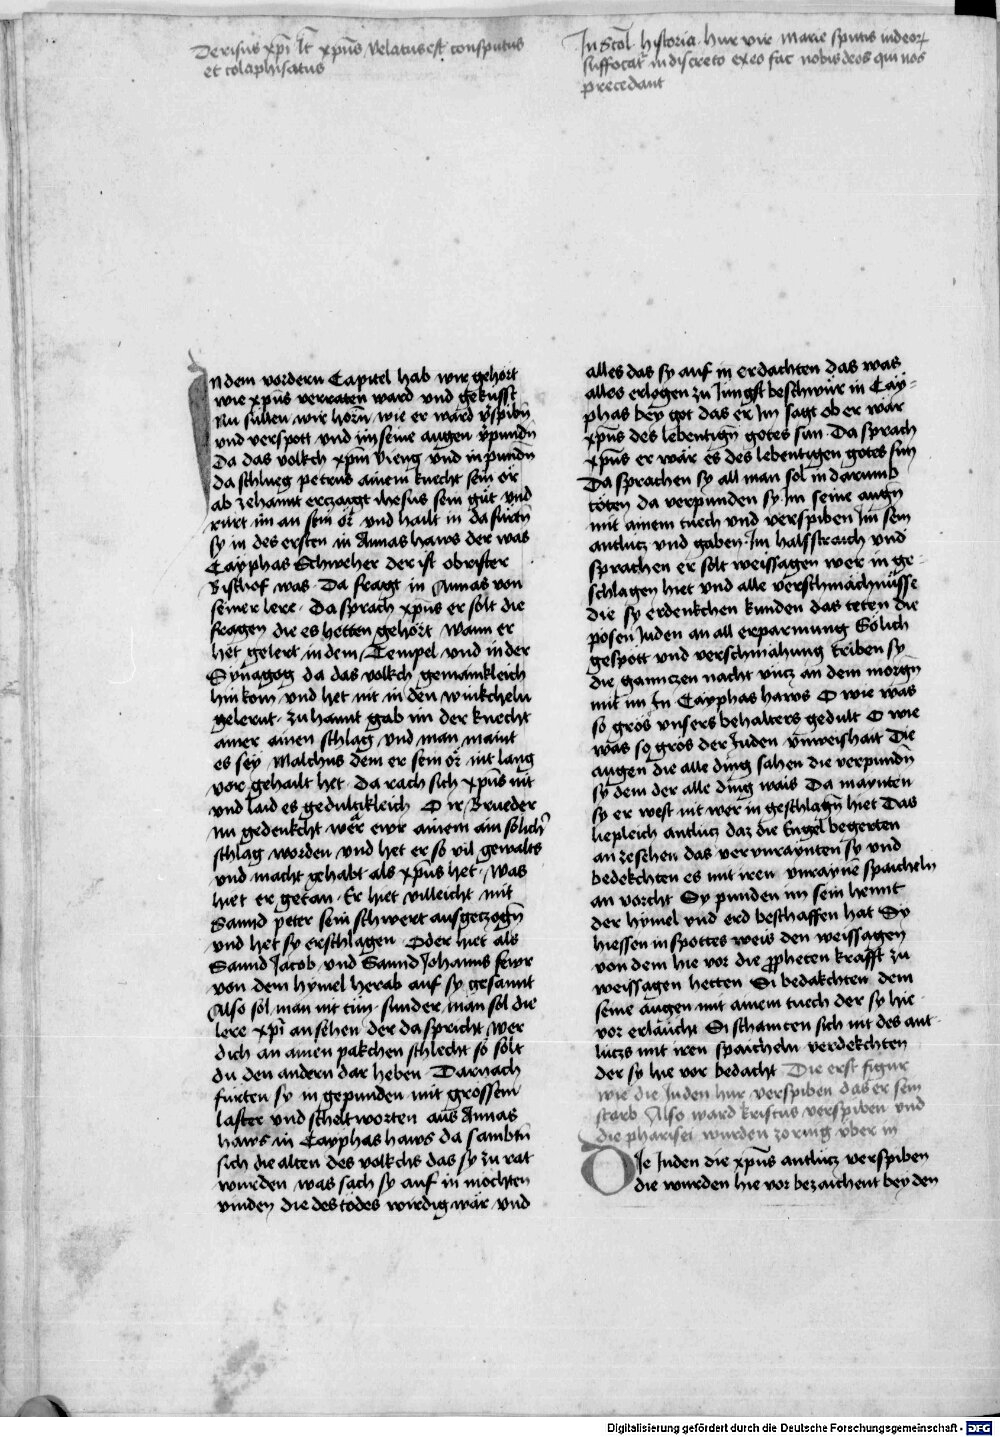 Derisus xp̄i l̄r xp̄us velatus est consputus
et colaphisatus
In Scol historia hur vir marie sputis iudeor
suffocat indiscreto exeo fac nobis deos qui nos
precedant
In dem vordern Capitel hab wir gehort
wie xp̄us verraten ward vnd gekusst
Nu sullen wir horn̄ wie er ward v̄spibn̄
vnd verspott vnd im seine augen v̄pundn̄
Da das volkch xpm vieng vnd in pundn̄
da schlueg petrus ainem knecht sein ör
ab zehannt erczaigt ihesus sein guͤt vnd
rurt im an sein oͤr vnd hailt in da furtn̄
sy in des ersten in Annas haws der was
Cayphas Schweher der ist obrister
Bischof was Da fragt in Annas von
seiner lere Da sprach xp̄us er solt die
fragen die es hetten gehort Wann er
het gelert in dem Tempel vnd in der
Synagog da das volkch gemainkleich
hin kom vnd het nit in den winkcheln
gelernt zu hannt gab im der knecht
ainer ainen schlag vnd man maint
es sey Malchus dem er sein oͤr nit lang
vor gehailt het Da rach sich xp̄us nit
vnd laid es gedultikleich O ir Brueder
nu gedenkcht wër ewr ainem ain solich
schlag worden vnd het er so vil gewalts
vnd macht gehabt als xp̄us het Was
hiet er getan Er hiet villeicht mit
Sannd peter sein schwert ausgetzogn̄
vnd het sy erschlagen Oder hiet als
Sannd Jacob vnd Sannd Johanns fewr
von dem hymel herab auf sy gesannt
Also sol man nit tün sunder man sol die
lere xp̄i ansehen der da spricht wer
dich an ainen pakchen schlecht so solt
du den andern dar heben Darnach
furten sy in gepunden mit grossem
laster vnd scheltworten aus Annas
haws in Cayphas haws da sambtn̄
sich die alten des volkchs das sy zu rat
wurden was sach sy auf in mochten
vinden die des todes wirdig wär vnd
alles das sy auf in erdachten das was
alles erlogen zu Jungst beschwür in Cay-
phas bey got das er Im sagt ob er wär
xp̄us des lebentign̄ gotes sun Da sprach
xp̄us er wär es des lebentigen gotes sun
Da sprachen sy all man sol in darumb
töten da verpunden sy Im seine augn̄
mit ainem tuech vnd verspiben Im sein
antlutz vnd gaben Im halsstraich vnd
sprachen er solt weissagen wer in ge-
schlagen hiet vnd alle verschmächnüsse
die sy erdenkchen kunden das teten die
posen Juden an all erparmung Sölich
gespött vnd verschmähung triben sy
die ganntzen nacht vntz an dem morgn̄
mit im In Cayphas haws O wie was
so gros vnsers behalters gedult O wie
was so gros der Juden vnweishait Die
augen die alle ding sahen die verpundn̄
sy dem der alle ding wais Da maynten
sy er west nit wer in geschlagn̄ hiet Das
liepleich antlutz daz die Engel begerten
an zesehen das vervnraynten sy vnd
bedekchten es mit iren vnrayne spaicheln
an vorcht Sy punden im sein hennt
der hymel vnd erd beschaffen hat Sy
hiessen in spottes weis den weissagen
von dem hie vor die p̄pheten krafft zu
weissagen hetten Si bedakchten dem
seine augen mit ainem tuech der sy hie
vor erlaucht Si schamten sich nit des ant-
lutzs mit iren spaicheln verdekchten
der sy hie vor bedacht Die erst figur
wie die Juden hur verspiben das er sein
starb Also ward kristus verspiben vnd
die pharisei wurden zoring vber in
Die Juden die xp̄us antlutz verspiben
die wurden hie vor bezaichent bey den
Digitalisierung gefördert durch die Deutsche Forschungsgemeinschaft - DFG